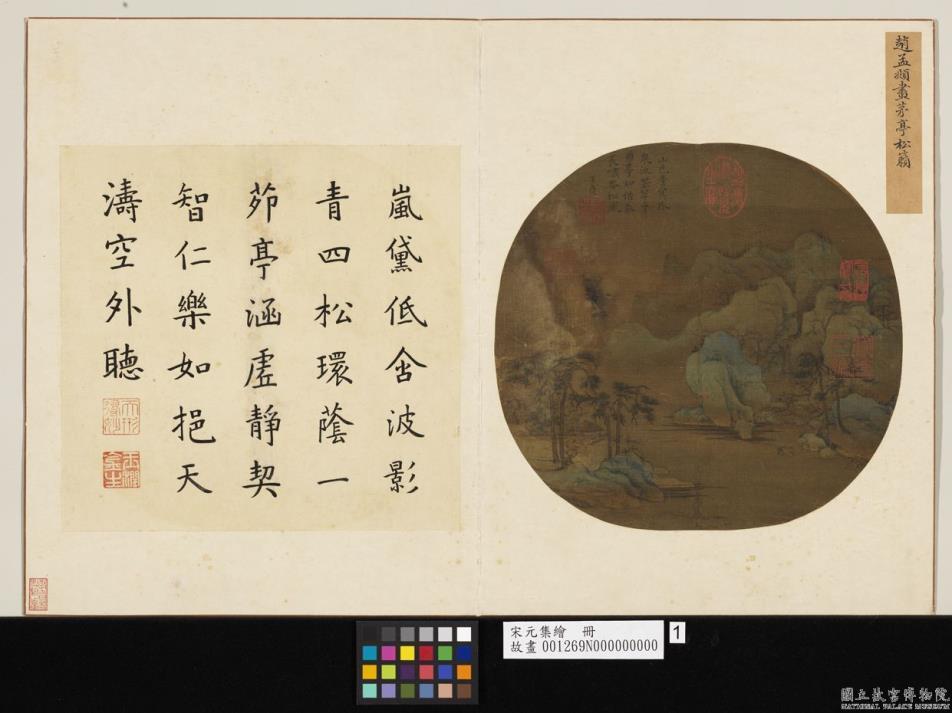 趙孟頫畫茅亭松籟
嵐黛低含波影
青四松環蔭一
茆亭涵虛靜契
智仁樂如挹天
濤空外聽
宋元集繪 冊
故畫 001269N000000000
1
國立故宮博物院
NATIONAL PALACE MUSEUM